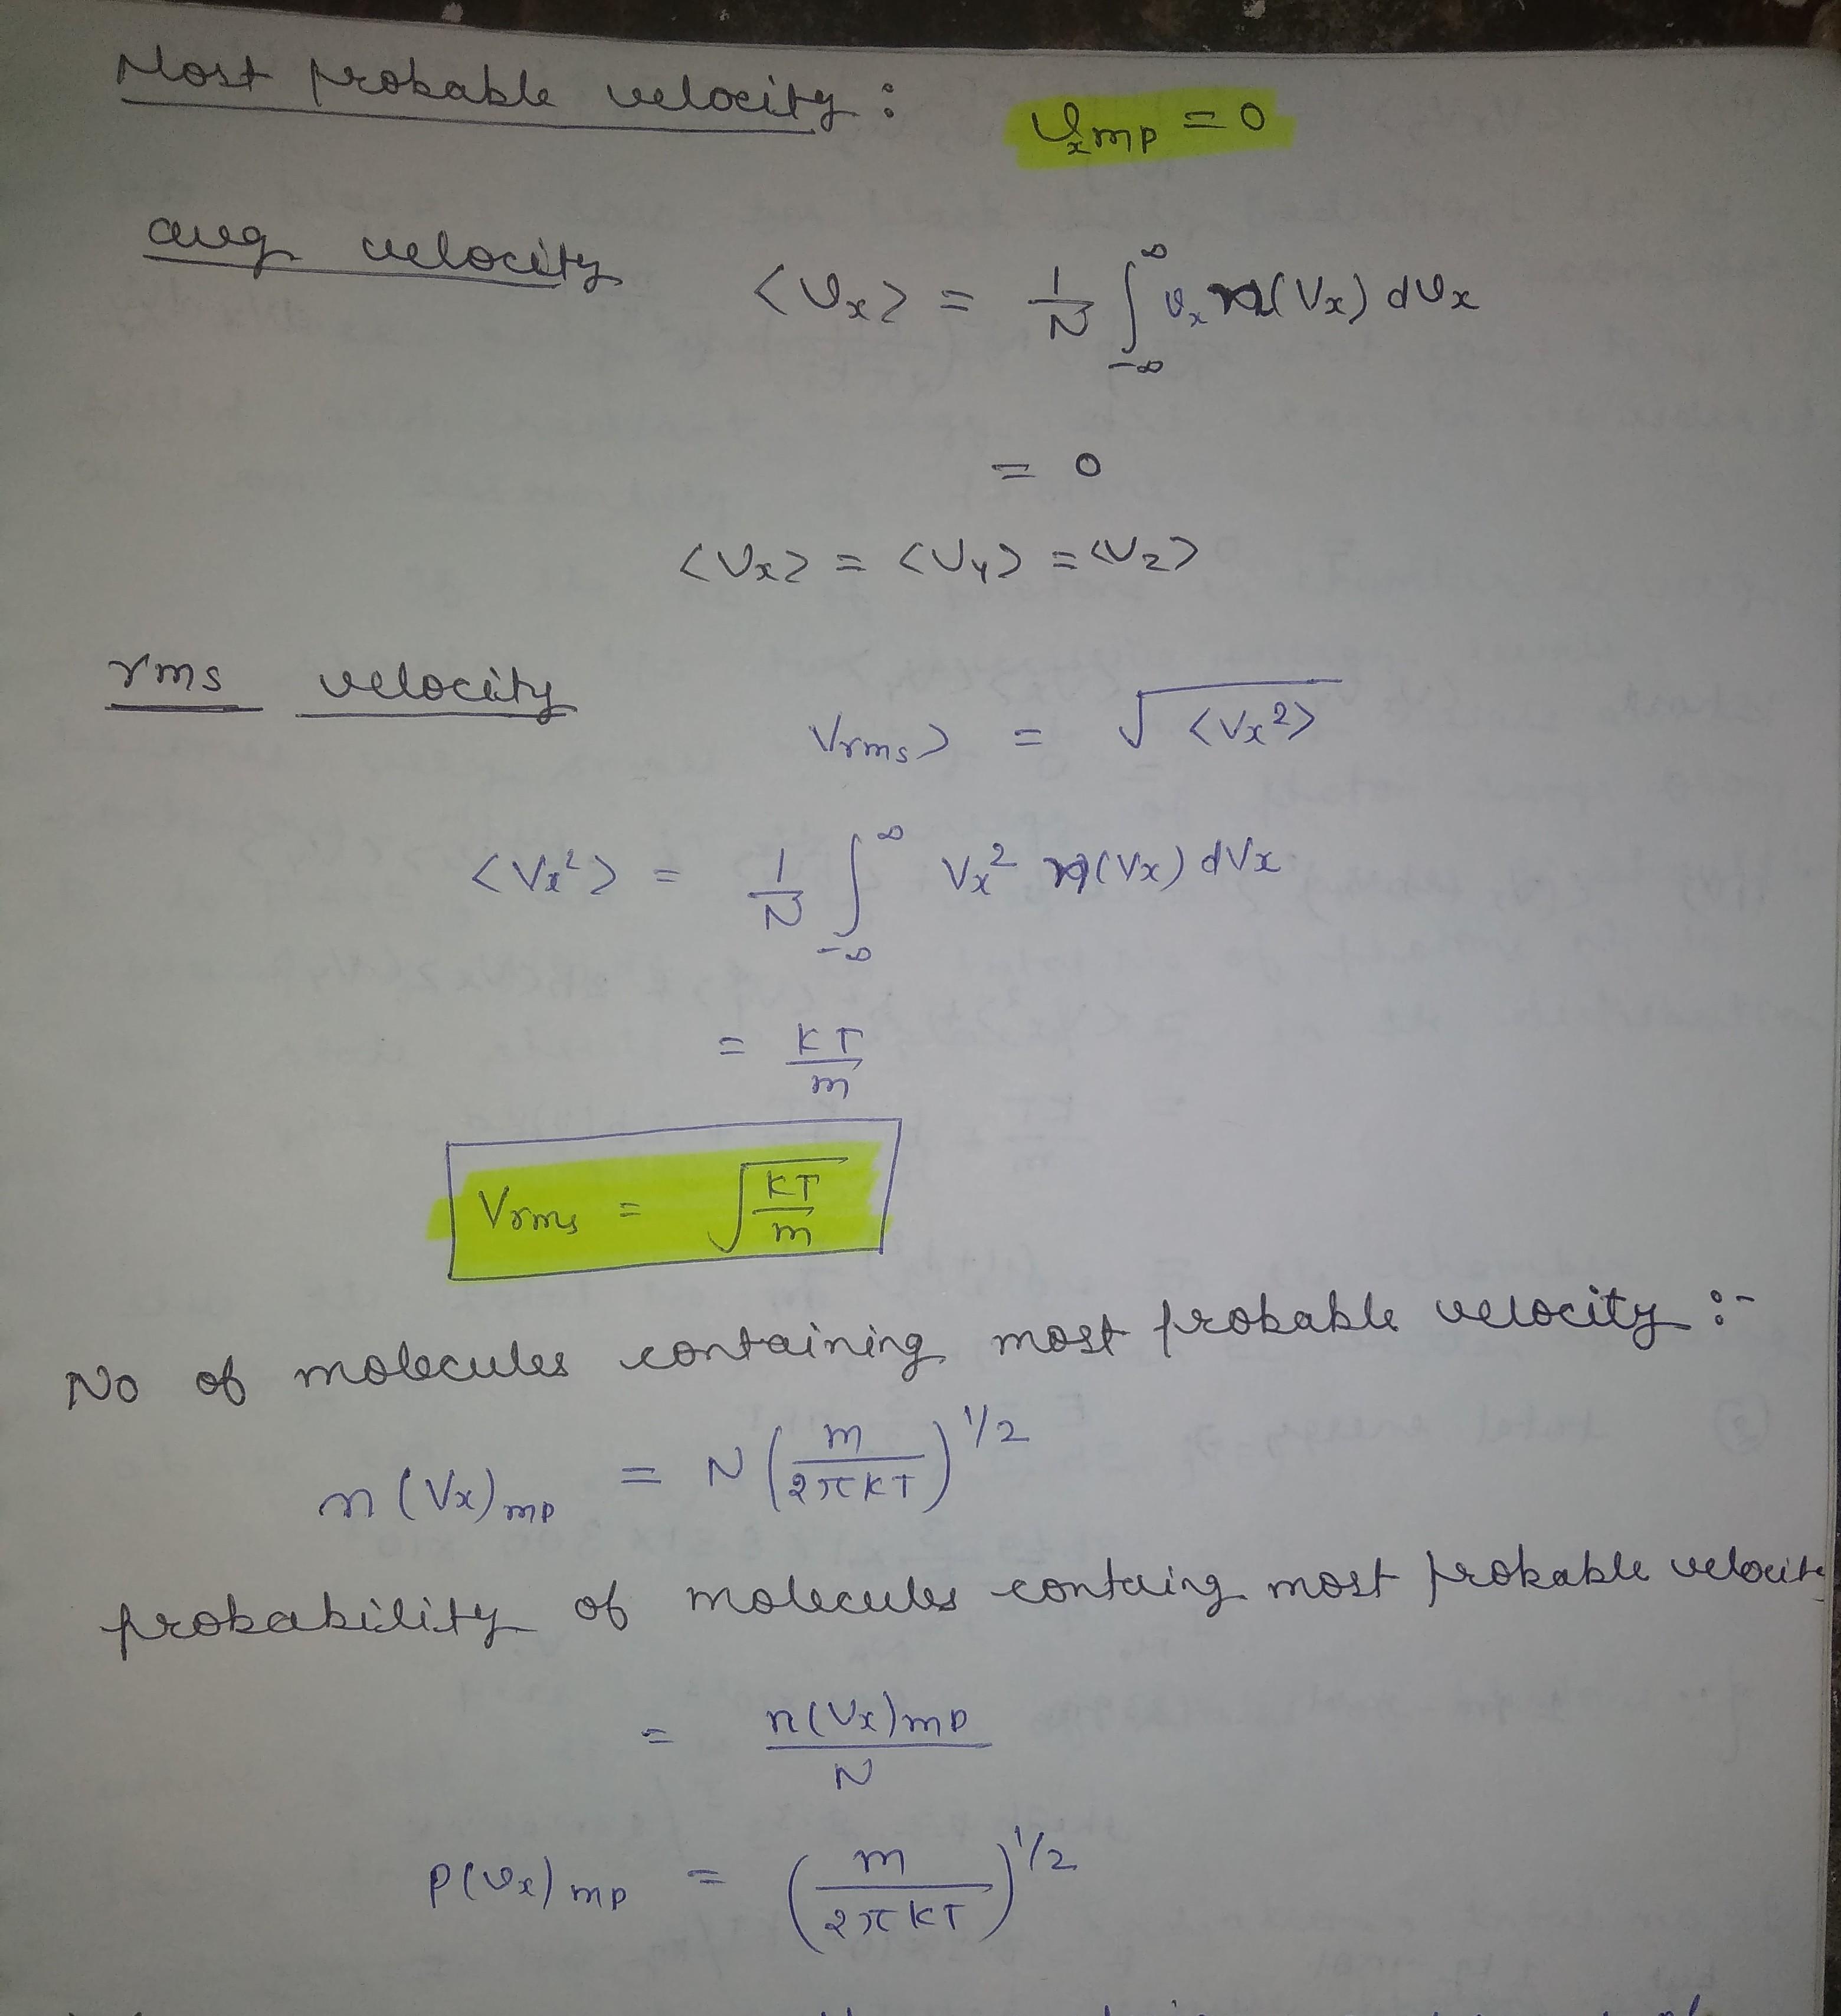 Most probable velocity : Vxmp = 0
avg velocity <Vx> = 1/N ∫_{-∞}^{∞} Vx n(Vx) dVx
= 0
<Vx> = <Vy> = <Vz>
rms velocity
Vrms> = √<Vx²>
<Vx²> = 1/N ∫_{-∞}^{∞} Vx² n(Vx) dVx
= KT/m
Vrms = √(KT/m)
No of molecules containing most probable velocity :-
n(Vx)mp = N (m/2πKT)^1/2
probability of molecules containg most probable velocity
= n(Vx)mp / N
P(Vx)mp = (m/2πKT)^1/2